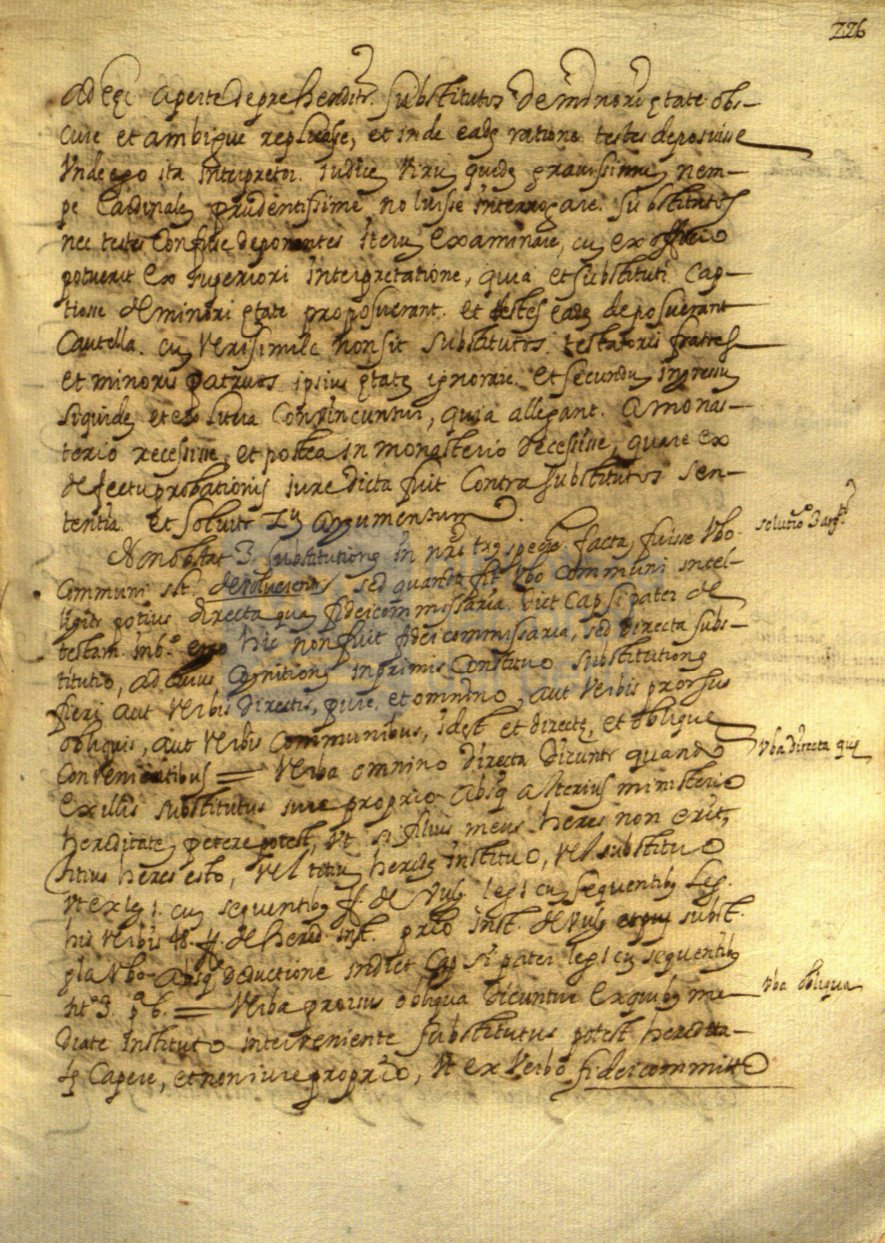 226
aperte deprehenditr. substitutos de minori ętate obs-
cure et ambigue et inde eadę ratione testes deposuisse
Unde ego ita interpretor. Iudicę virū quidę gravissimū nem-
pe Cardinalę prudentissime noluisse interrogare. substitutos
nec testes Confuse deponentes iterū examinare, cū ex officio
potuerit ex superiori interpretatione, quia et substituti Cap-
tiose de minori ętate proposuerant. et testes eadę deposuerant
Cautella. cū verisimile non sit substitutos. testatoris fratres
et minoris patruos ipsius ętatę ignorare. et secundū ingressū
siquidę et ex litera Convincuntur, quia allegant. a monas-
terio recessisse, et postea in monasterio decessisse, quare ex
defectu probationis iure dicta fuit Contra substitutos sen-
tentia. et solvitr argumentum.
Non obstat 3. substitutionę in nro specie factā fuisse vbo
solutio 3 argti
Communi sed quando fit vbo communi intel-
ligitr potius directa quā fideicommissaria. Cap si pater de
testam. in 6.º ergo hic non fuit fideicommissaria, sed directa subs-
titutio, ad cuius cognitionę inprimis Constituo substitutionę
fieri aut verbis directis, pure, et omnino, aut verbis prorsus
obliquis, aut verbis Communibus, idest et directę, et oblique
Convenientibus = Verba omnino directa dicuntr quando
vba directa quę
ex illis substitutus iure proprio absq alterius ministerio
hereditatę petere potest, ut si filius meus heres non erit,
titius heres esto, vel titiū heredę instituo, vel substituo
ut ex leg 1. cū sequentibȝ ff. de vulg leg 1 cū sequentibȝ leg.
his verbis 48. ff. de hered inst. inst. de vulg subst.
absq deductione Cap si pater leg 1 cū sequentibȝ
tit.º 3. p. 6. = Verba prorsus obliqua dicuntur ex quibȝ me-
vba obliqua
diate instituto interveniente substitutus potest heredita-
tę Capere, et non iure proprio, ut ex verbo fideicommitto